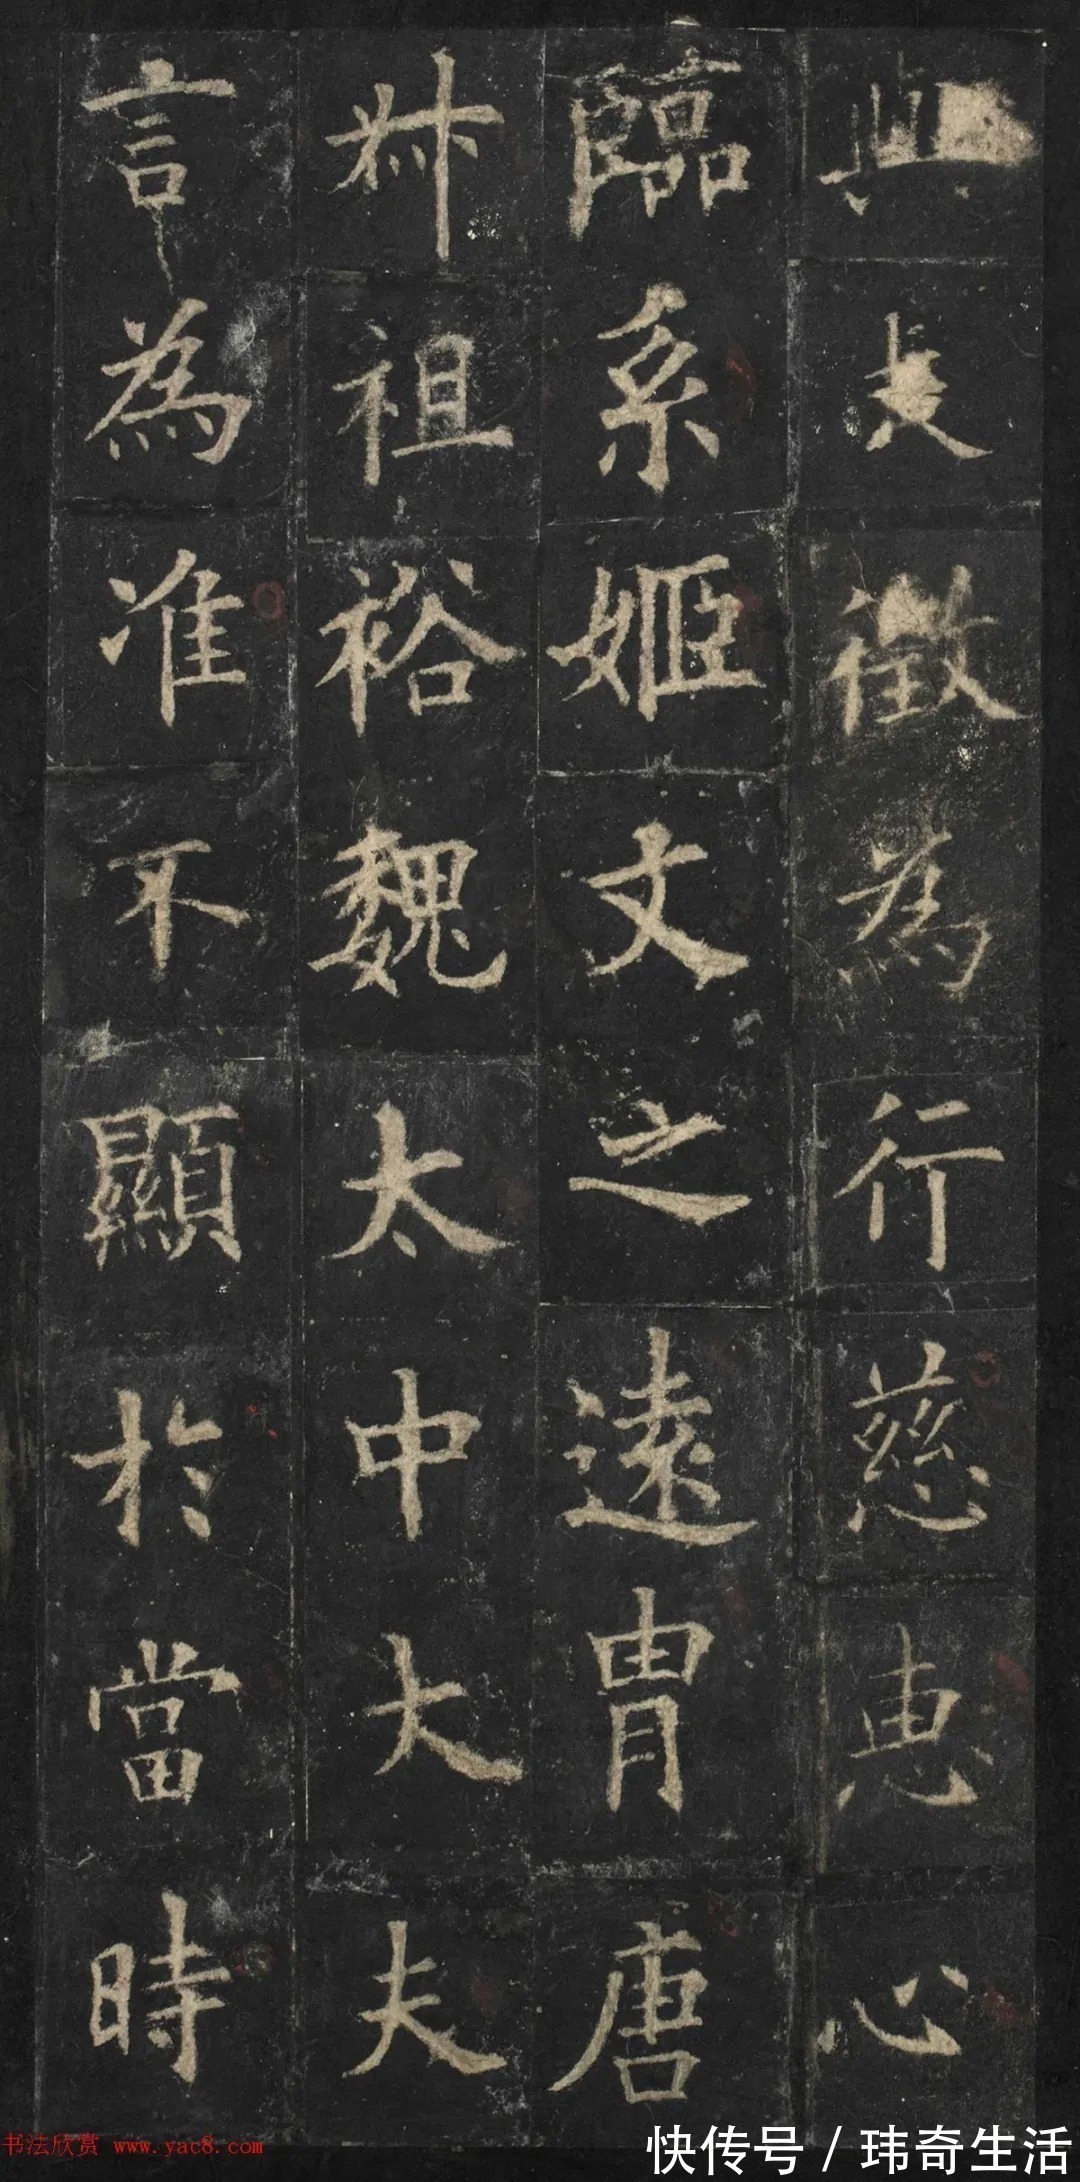 徵為行慈惠心
臨系姬文之遠胄唐
叔祖裕魏太中大夫
言為准不顯於當時
书法欣赏 www.yac8.com
快传号 / 玮奇生活